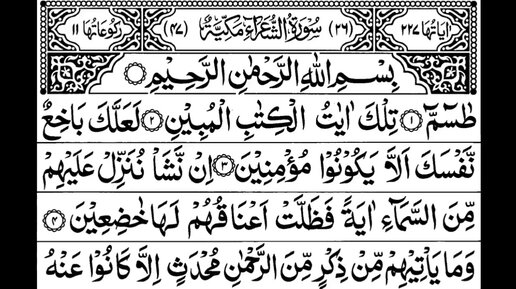 اٰیَاتُهَا ٢٢٧ (٢٦) سُوْرَةُ الشُّعَرَآءِ مَكِّيَّةٌ (٤٧) رُكُوْعَاتُهَا ١١
بِسْمِ اللّٰهِ الرَّحْمٰنِ الرَّحِيْمِ
طٰسٓمّٓ ١ تِلْكَ اٰيٰتُ الْكِتٰبِ الْمُبِيْنِ ٢ لَعَلَّكَ بَاخِعٌ
نَّفْسَكَ اَلَّا يَكُوْنُوْا مُؤْمِنِيْنَ ٣ اِنْ نَّشَاْ نُنَزِّلْ عَلَيْهِمْ
مِّنَ السَّمَآءِ اٰيَةً فَظَلَّتْ اَعْنَاقُهُمْ لَهَا خٰضِعِيْنَ ٤
وَمَا يَاْتِيْهِمْ مِّنْ ذِكْرٍ مِّنَ الرَّحْمٰنِ مُحْدَثٍ اِلَّا كَانُوْا عَنْهُ